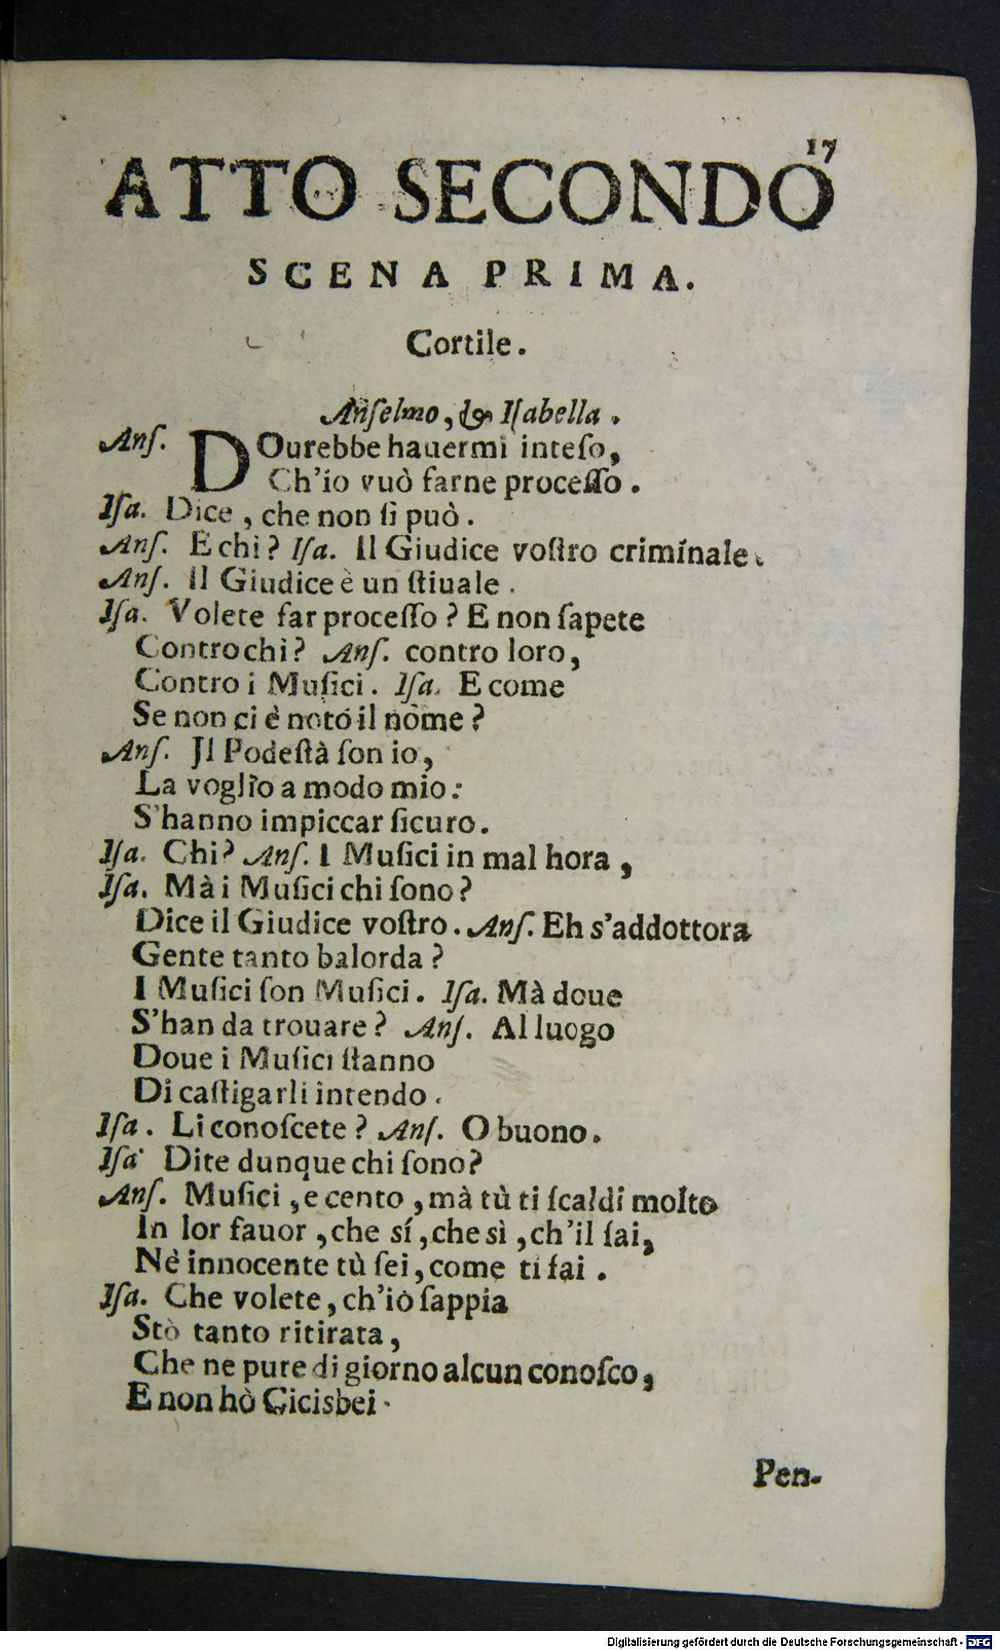 17
ATTO SECONDO
SCENA PRIMA.
Cortile.
Anſelmo, & Iſabella.
Anſ. DOurebbe hauermi inteſo,
Ch'io vuò farne proceſſo.
Iſa. Dice, che non ſi può.
Anſ. E chi? Iſa. Il Giudice voſtro criminale.
Anſ. Il Giudice è un ſtiuale.
Iſa. Volete far proceſſo? E non ſapete
Contro chi? Anſ. contro loro,
Contro i Muſici. Iſa. E come
Se non ci è noto il nome?
Anſ. Jl Podeſtà ſon io,
La voglio a modo mio:
S'hanno impiccar ſicuro.
Iſa. Chi? Anſ. I Muſici in mal hora,
Iſa. Mà i Muſici chi ſono?
Dice il Giudice voſtro. Anſ. Eh s'addottora
Gente tanto balorda?
I Muſici ſon Muſici. Iſa. Mà doue
S'han da trouare? Anſ. Al luogo
Doue i Muſici ſtanno
Di caſtigarli intendo.
Iſa. Li conoſcete? Anſ. O buono.
Iſa Dite dunque chi ſono?
Anſ. Muſici, e cento, mà tù ti ſcaldi molto
In lor fauor, che sí, che sì, ch'il ſai,
Nè innocente tù ſei, come ti fai.
Iſa. Che volete, ch'io ſappia
Stò tanto ritirata,
Che ne pure di giorno alcun conoſco,
E non hò Cicisbei.
Pen-
Digitalisierung gefördert durch die Deutsche Forschungsgemeinschaft - DFG